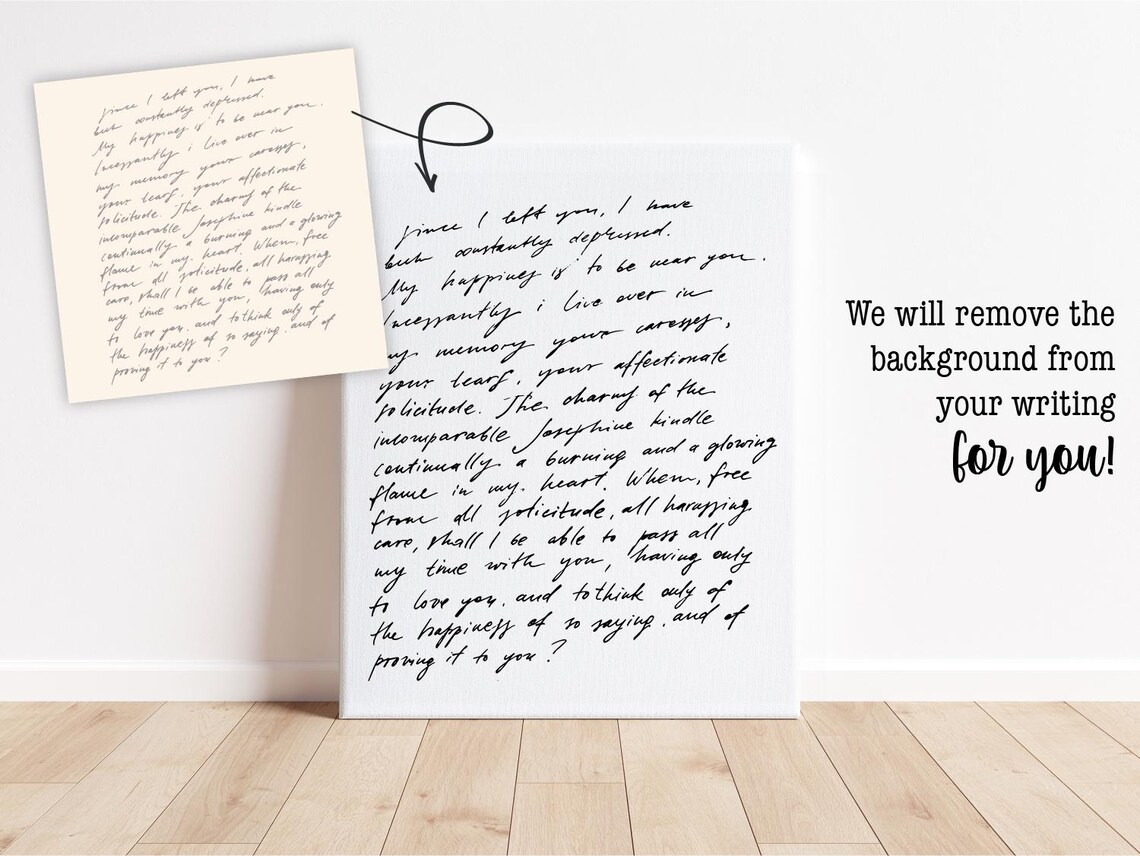 since I left you, I have
been constantly depressed.
My happines is to be near you.
Incessantly i live over in
my memory your caresses,
your tears, your affectionate
solicitude. The charms of the
incomparable Josephine kindle
continually a burning and a glowing
flame in my heart. When, free
from all solicitude, all harassing
care, shall I be able to pass all
my time with you, having only
to love you, and to think only of
the happiness of so saying, and of
proving it to you?
since I left you, I have
been constantly depressed.
My happines is to be near you.
Incessantly i live over in
my memory your caresses,
your tears, your affectionate
solicitude. The charms of the
incomparable Josephine kindle
continually a burning and a glowing
flame in my heart. When, free
from all solicitude, all harassing
care, shall I be able to pass all
my time with you, having only
to love you, and to think only of
the happiness of so saying, and of
proving it to you?
We will remove the
background from
your writing
for you!